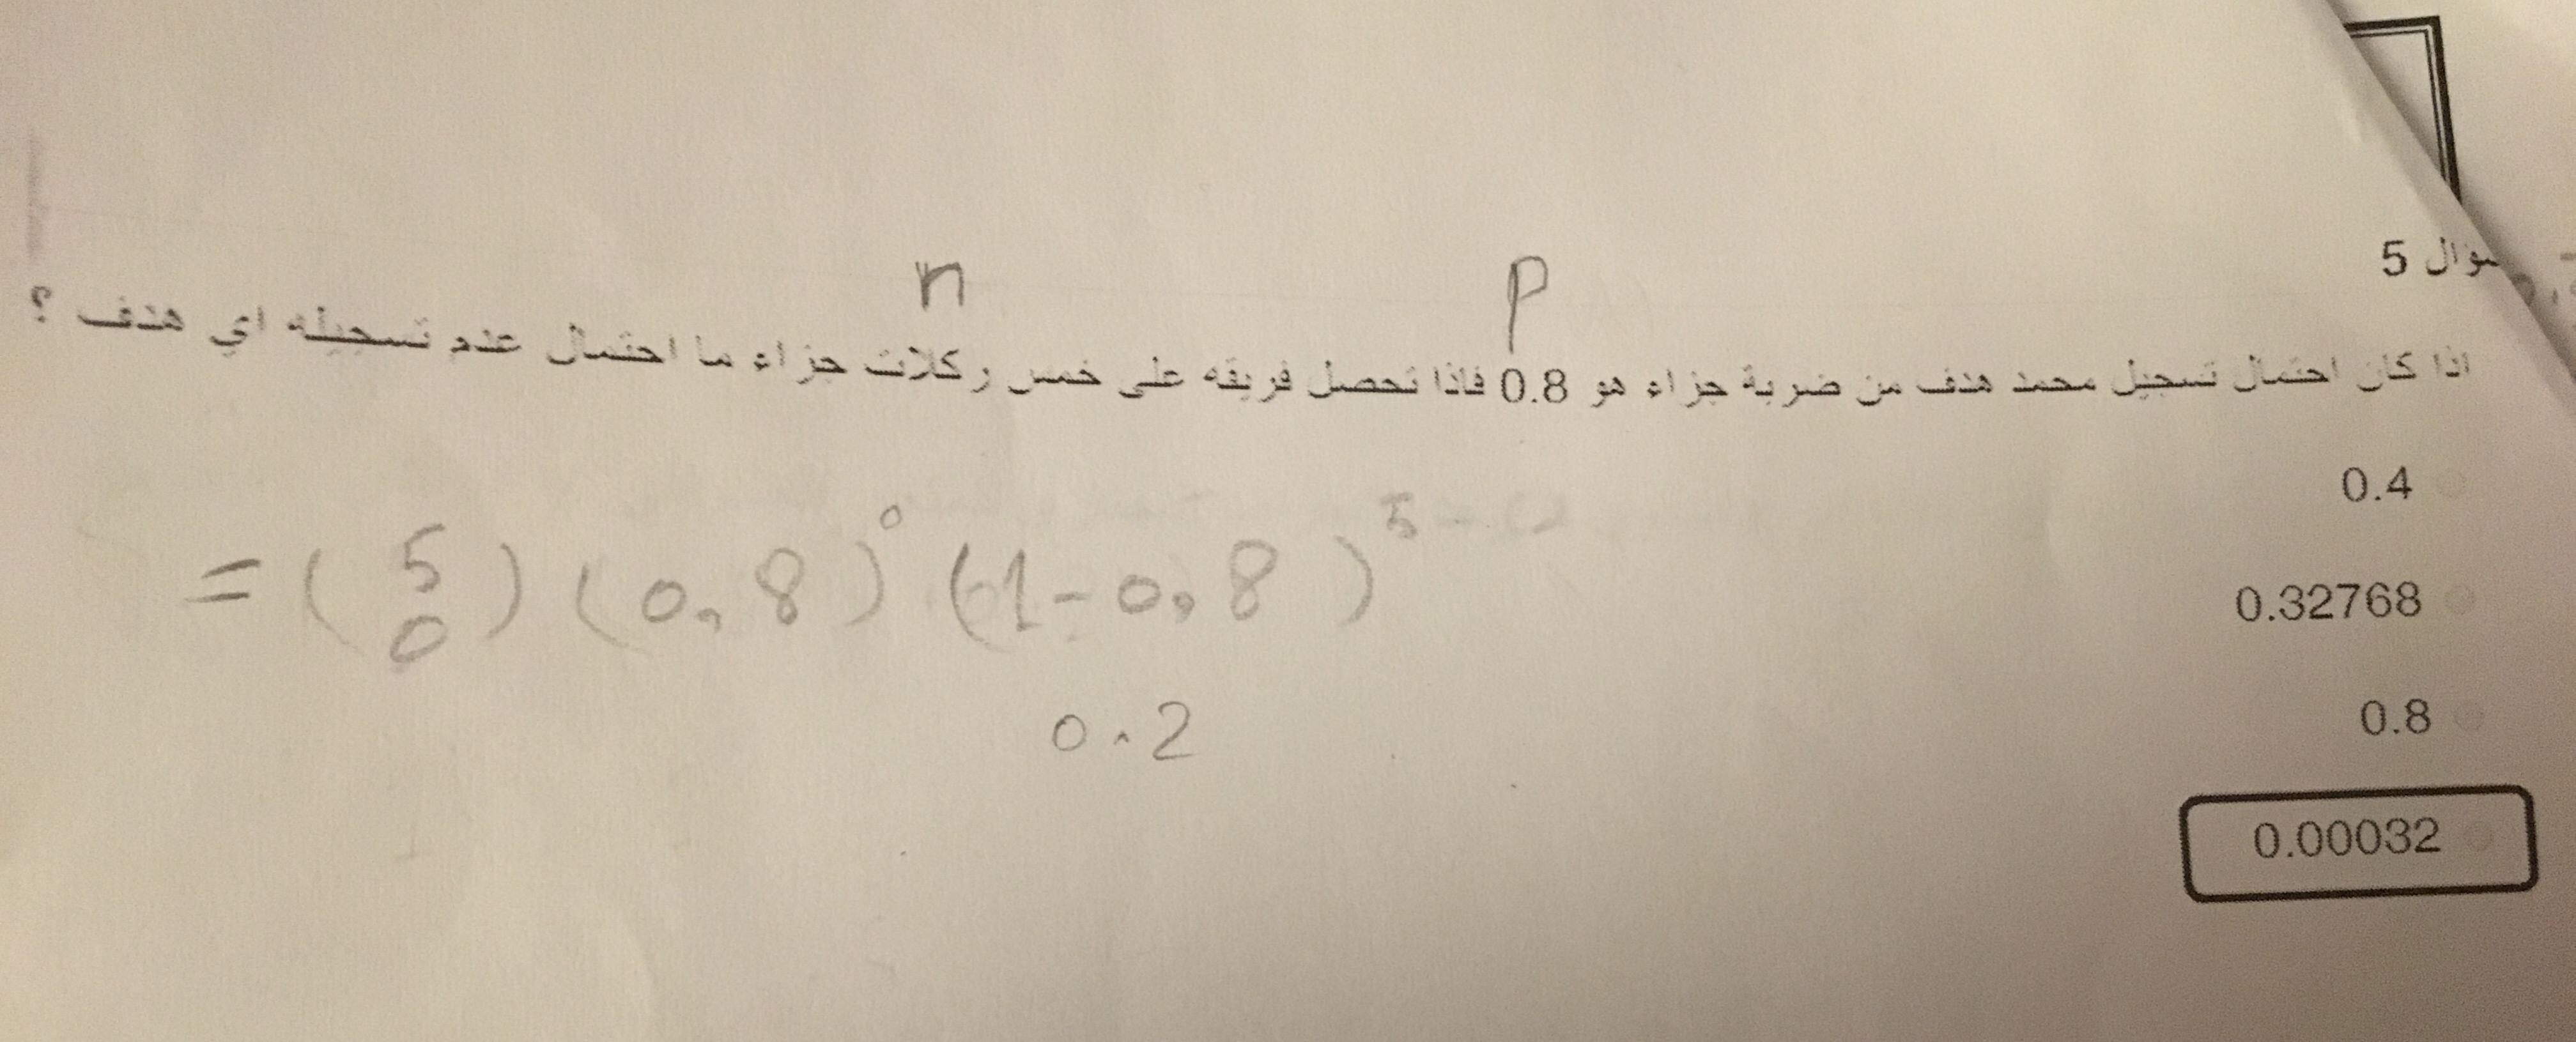 سؤال 5
n p
اذا كان احتمال تسجيل محمد هدف من ضربة جزاء هو 0.8 فاذا تحصل فريقه على خمس ركلات جزاء ما احتمال عدم تسجيله اي هدف ؟
0.4
= (5 0) (0,8)⁰ (1-0,8)⁵⁻⁰
0.32768
0.2
0.8
0.00032